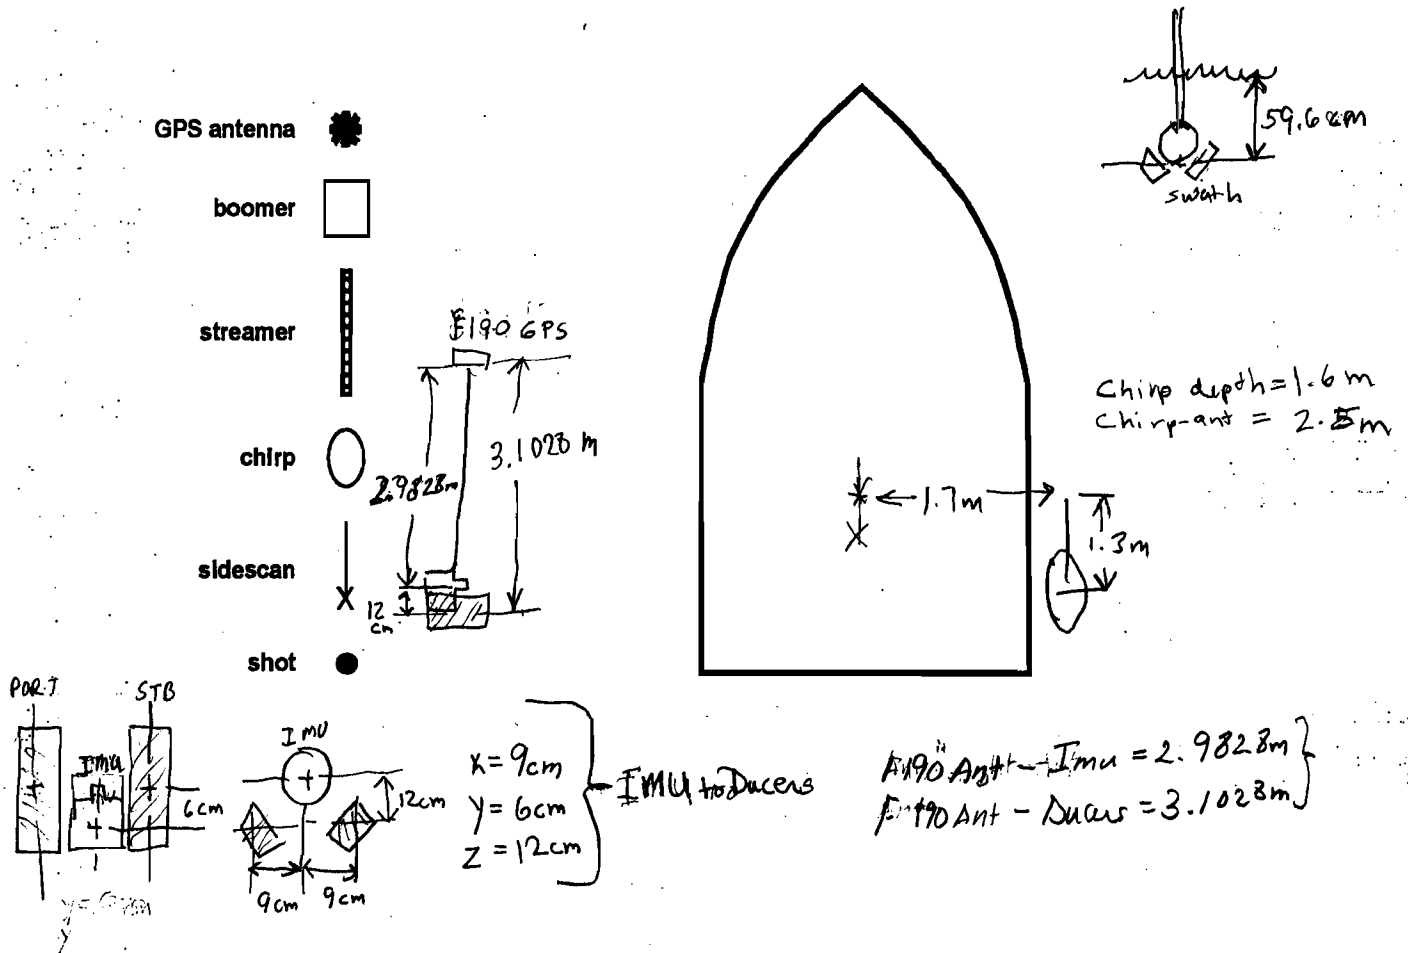 GPS antenna
boomer
streamer
chirp
sidescan
shot
F190 GPS
2.9828m
3.1028 m
12
cm
59.6cm
swath
Chirp depth = 1.6 m
Chirp-ant = 2.5m
1.7m
1.3m
PORT
STB
Imu
6cm
Imu
12cm
9cm
9cm
X= 9cm
Y= 6cm
Z = 12cm
IMU to Ducers
F190 Ant - Imu = 2.9828m
F190 Ant - Ducers = 3.1028m